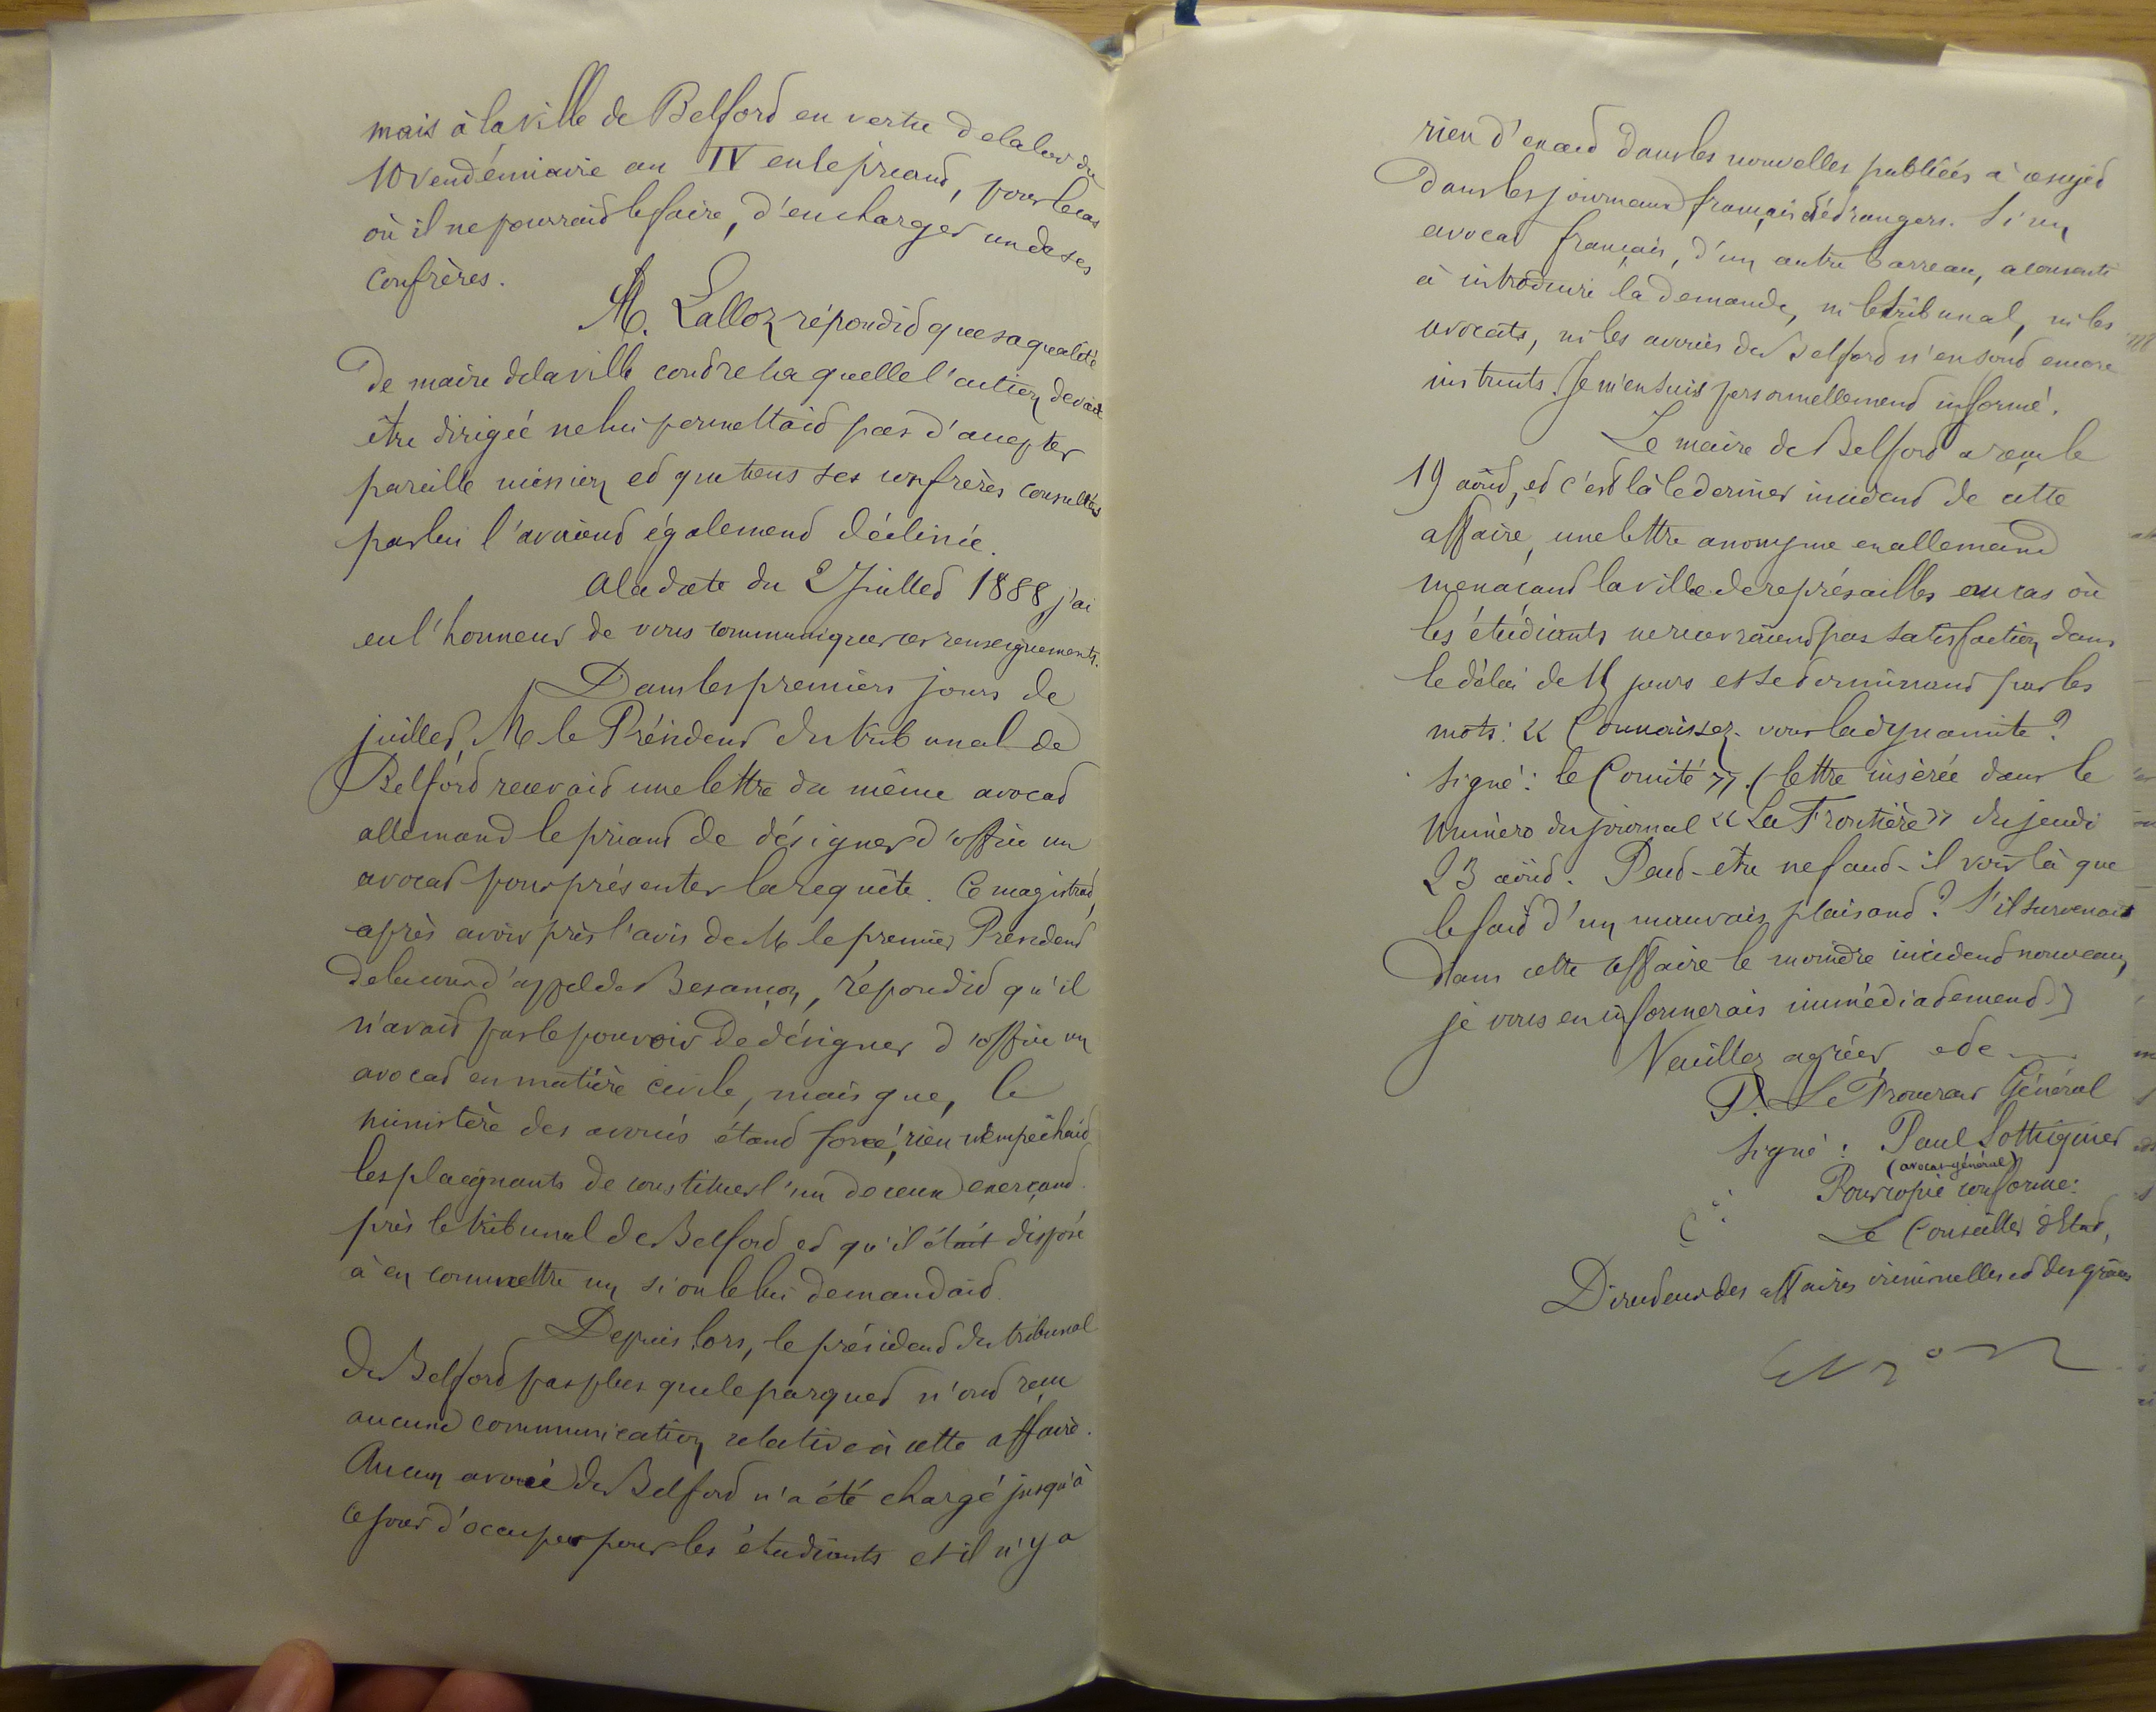 mais à la ville de Belfort en vertu de la loi du
10 vendémiaire an IV en le priant, pour le cas
où il ne pourrait le faire, d'en charger un de ses
confrères.
M. Lalloz répondit que sa qualité
de maire de la ville contre laquelle l'action devait
être dirigée ne lui permettait pas d'accepter
pareille mission et que tous ses confrères consultés
par lui l'avaient également déclinée.
A la date du 2 Juillet 1888, j'ai
eu l'honneur de vous communiquer ces renseignements.
Dans les premiers jours de
juillet, M le Président du tribunal de
Belfort recevait une lettre du même avocat
allemand le priant de désigner d'office un
avocat pour présenter la requête. Ce magistrat,
après avoir pris l'avis de M le premier Président
de la cour d'appel de Besançon, répondit qu'il
n'avait pas le pouvoir de désigner d'office un
avocat en matière civile, mais que, le
ministère des avoués étant forcé, rien n'empêchait
les plaignants de constituer l'un de ceux exerçant
près le tribunal de Belfort et qu'il était disposé
à en commettre un si on le lui demandait.
Depuis lors, le président du tribunal
de Belfort pas plus que le parquet n'ont reçu
aucune communication relative à cette affaire.
Aucun avoué de Belfort n'a été chargé jusqu'à
ce jour d'occuper pour les étudiants et il n'y a
rien d'exact dans les nouvelles publiées à ce sujet
dans les journaux français et étrangers. Si un
avocat français, d'un autre barreau, a consenti
à introduire la demande, ni le tribunal, ni les
avocats, ni les avoués de Belfort n'en sont encore
instruits. Je m'en suis personnellement informé.
Le maire de Belfort a reçu le
19 août, et c'est là le dernier incident de cette
affaire, une lettre anonyme en allemand
menaçant la ville de représailles au cas où
les étudiants ne recevraient pas satisfaction dans
le délai de 15 jours et se terminant par les
mots: « Connaissez-vous la dynamite ?
signé : le Comité ». (lettre insérée dans le
numéro du journal « La Frontière » du jeudi
23 août. Peut-être ne faut-il voir là que
le fait d'un mauvais plaisant ? S'il survenait
dans cette affaire le moindre incident nouveau,
je vous en informerais immédiatement)
Veuillez agréer, etc
P. Le Procureur Général
signé : Paul Cottignies
(avocat-général)
Pour copie conforme:
Le Conseiller d'Etat,
Directeur des affaires criminelles et des grâces